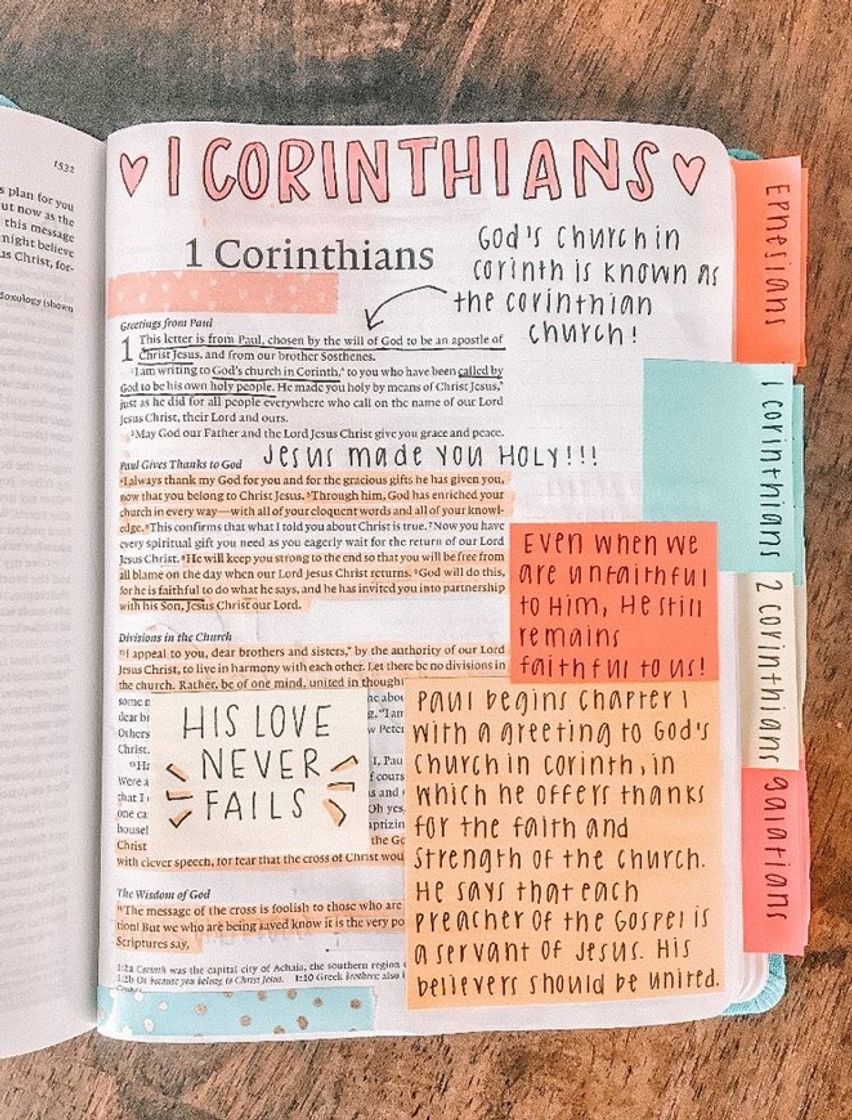 1532
s plan for you
ut now as the
this message
night believe
us Christ, for-
doxology (shown
I CORINTHIANS
1 Corinthians
God's Church in
corinth is known as
the corinthian
church!
Greetings from Paul
1 This letter is from Paul, chosen by the will of God to be an apostle of
Christ Jesus, and from our brother Sosthenes.
²I am writing to God's church in Corinth,ᵃ to you who have been called by
God to be his own holy people. He made you holy by means of Christ Jesus,ᵇ
just as he did for all people everywhere who call on the name of our Lord
Jesus Christ, their Lord and ours.
³May God our Father and the Lord Jesus Christ give you grace and peace.
Jesus made you HOLY!!!
Paul Gives Thanks to God
⁴I always thank my God for you and for the gracious gifts he has given you,
now that you belong to Christ Jesus. ⁵Through him, God has enriched your
church in every way—with all of your eloquent words and all of your knowl-
edge. ⁶This confirms that what I told you about Christ is true. ⁷Now you have
every spiritual gift you need as you eagerly wait for the return of our Lord
Jesus Christ. ⁸He will keep you strong to the end so that you will be free from
all blame on the day when our Lord Jesus Christ returns. ⁹God will do this,
for he is faithful to do what he says, and he has invited you into partnership
with his Son, Jesus Christ our Lord.
Even when we
are unfaithful
to Him, He still
remains
faithful to us!
Divisions in the Church
¹⁰I appeal to you, dear brothers and sisters,ᵃ by the authority of our Lord
Jesus Christ, to live in harmony with each other. Let there be no divisions in
the church. Rather, be of one mind, united in though
some
dear b
Others
Christ.
Were a
that I
one ca
housel
Christ
he abou
g. "I am
w Peter
I, Pau
f cours
us and
Oh yes,
aptizin
the Go
with clever speech, for fear that the cross of Christ wou
HIS LOVE
NEVER
FAILS
Paul begins chapter 1
with a greeting to God's
Church in Corinth, in
which he offers thanks
for the faith and
strength of the church.
He says that each
preacher of the Gospel is
a servant of Jesus. His
believers should be united.
The Wisdom of God
¹⁸The message of the cross is foolish to those who are
tion! But we who are being saved know it is the very po
Scriptures say,
1:2a Corinth was the capital city of Achaia, the southern region
1:2b Or because you belong to Christ Jesus. 1:10 Greek brothers; also i
Ephesians
1 corinthians
2 corinthians
galatians